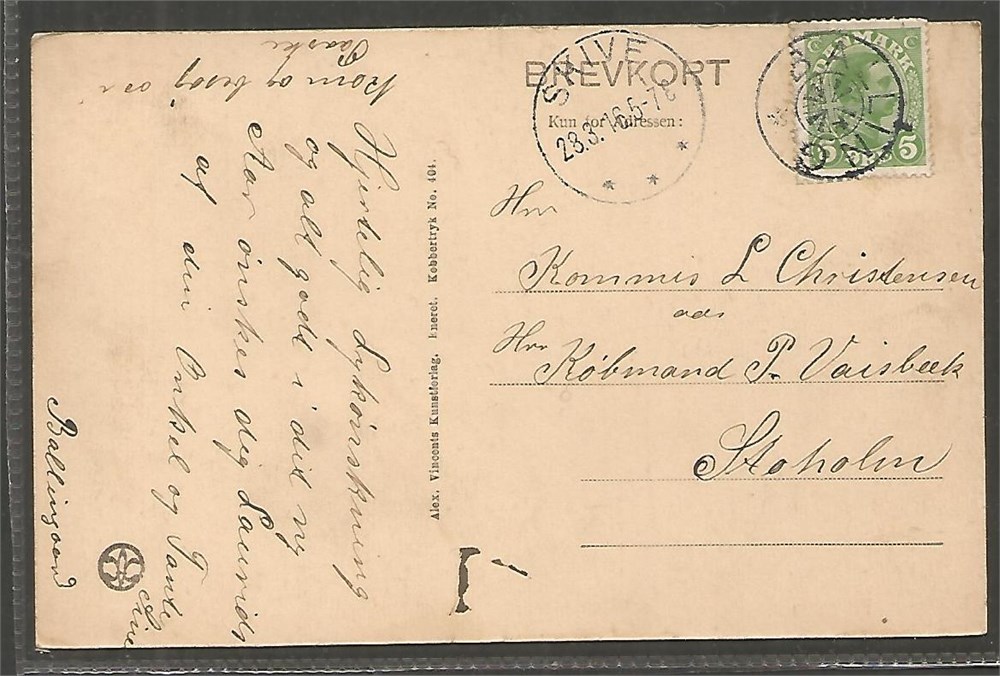 BREVKORT
Kun for Adressen:
SKIVE
28.3.16.5-7E
BALLING
DANMARK
5 ØRE 5
Hrr
Kommis L Christensen
ads
Hrr Købmand P. Vaisbeek
Stoholm
Alex. Vincents Kunstforlag, Eneret. Kobbertryk No. 404.
Hjertelig Lykønskning
og alt godt i dit ny
Aar ønskes dig Laurids
af din Onkel og Tante
Sine
Ballinggaard
Kom og besøg os i
Paaske